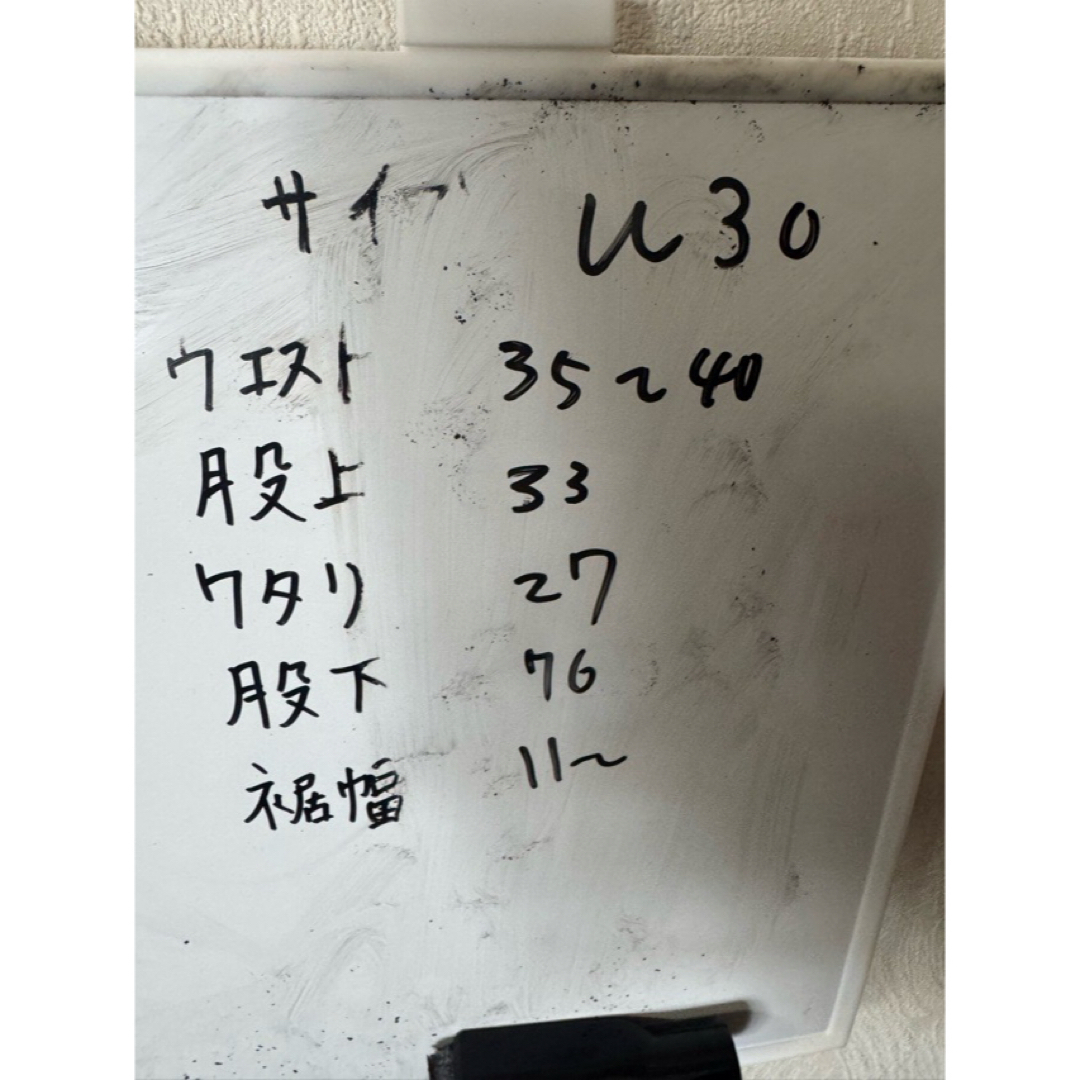 サイズ U30
ウエスト 35~40
股上 33
ワタリ 27
股下 76
裾幅 11~